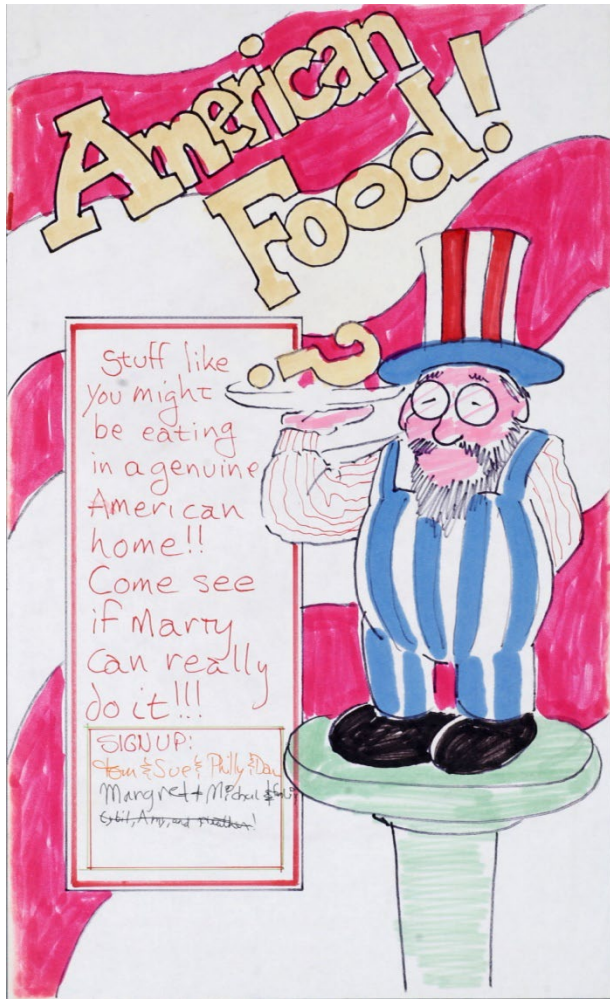 American
Food!
?
Stuff like
you might
be eating
in a genuine
American
home!!
Come see
if Marty
can really
do it!!!
SIGNUP:
Tom & Sue & Philly & Dav
Margret + Michal &
Amy, and